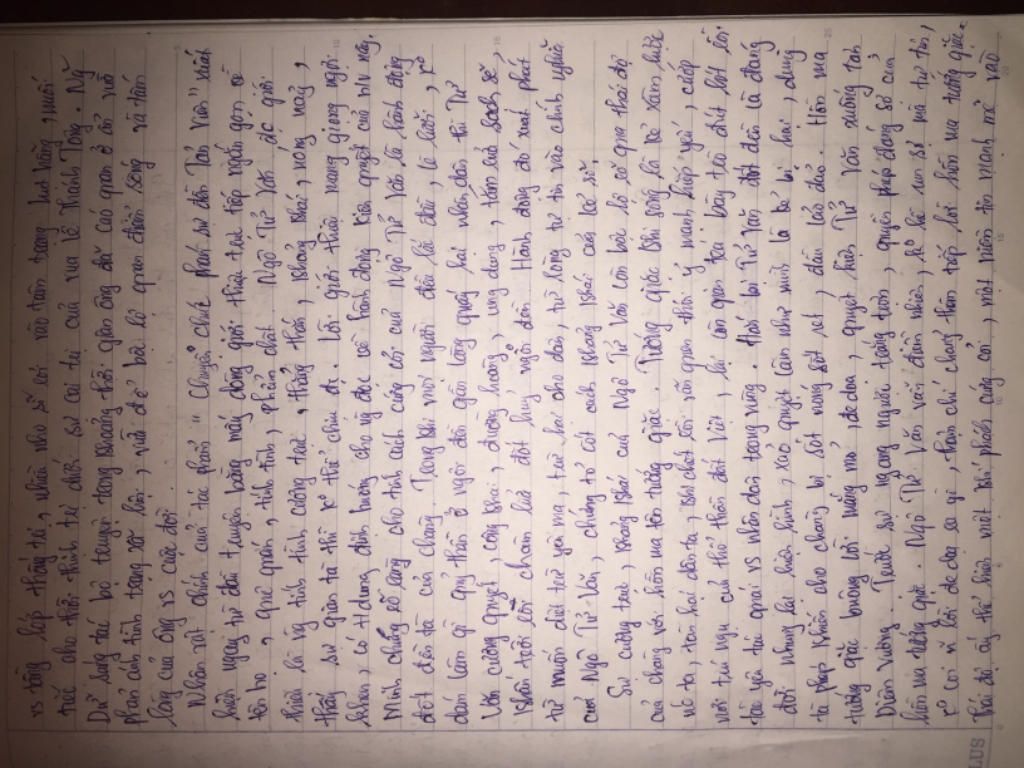 vs tầng lớp thống trị, nhà nho sĩ rơi vào tâm trạng hụt hẫng, nuối
tiếc cho thời thịnh trị dưới sự cai trị của vua Lê Thánh Tông. Ng~
Dữ sáng tác bộ truyện trong khoảng thời gian ông đã cáo quan ở ẩn vừa
phản ánh tình trạng xã hội, vừa để bộc lộ quan điểm sống và tấm
lòng của ông vs cuộc đời.
Nhân vật chính của tác phẩm " Chuyện chức phán sự đền Tản Viên" xuất
hiện ngay từ đầu truyện bằng mấy dòng giới thiệu trực tiếp ngắn gọn về
tên họ, quê quán, tính tình, phẩm chất. Ngô Tử Văn đc giới
thiệu là ng tính tình cương trực, thẳng thắn, khảng khái, nóng nảy,
thấy sự gian tà thì k° thể chịu đc. Lời giới thiệu mang giọng ngợi
khen, có td định hướng cho ng đọc về hành động kiên quyết của n/v này.
Minh chứng rõ ràng cho tính cách cứng cỏi của Ngô Tử Văn là hành động
đốt đền tà của chàng. Trong khi mọi người đều lắc đầu, lè lưỡi, k°
dám làm gì ông thần ở ngôi đền gần làng quấy hại nhân dân thì Tử
Văn cương quyết, công khai, đường hoàng, ung dung, tắm rửa sạch sẽ,
khấn trời rồi châm lửa đốt huỷ ngôi đền. Hành động đó xuất phát
từ muốn diệt trừ yêu ma, trừ hại cho dân, từ lòng tự tin vào chính nghĩa
của Ngô Tử Văn, chứng tỏ cốt cách khảng khái của kẻ sĩ.
Sự cương trực, khảng khái của Ngô Tử Văn còn bộc lộ rõ qua thái độ
của chàng với hồn ma tên tướng giặc. Tướng giặc khi sống là kẻ xâm lược
nước ta, tàn hại dân ta, khi chết rồi vẫn quen thói ỷ mạnh hiếp yếu, cướp
nơi trú ngụ của thổ thần đất Việt, lại còn quen tác oai
tác yêu tác quái vs nhân dân trong vùng. Hắn bị Tử Văn đốt đền là đáng
đời nhưng lại hiện hình, xảo quyệt như mình là kẻ bị hại, dùng
tà phép khiến cho chàng bị sốt nóng sốt rét, đầu lảo đảo. Hồn ma
tướng giặc buông lời mắng mỏ, đe doạ, quyết kiện Tử Văn xuống tận
Diêm Vương. Trước sự ngang ngược trắng trợn, quyền phép đáng sợ của
hồn ma tướng giặc. Ngô Tử Văn vẫn điềm nhiên, k° hề run sợ mà tự tin,
k° coi n~ lời đe doạ ra gì, thậm chí chẳng thèm tiếp lời hồn ma tướng giặc.
Thái độ ấy thể hiện một khí phách cứng cỏi, một niềm tin mạnh mẽ vào
LUS